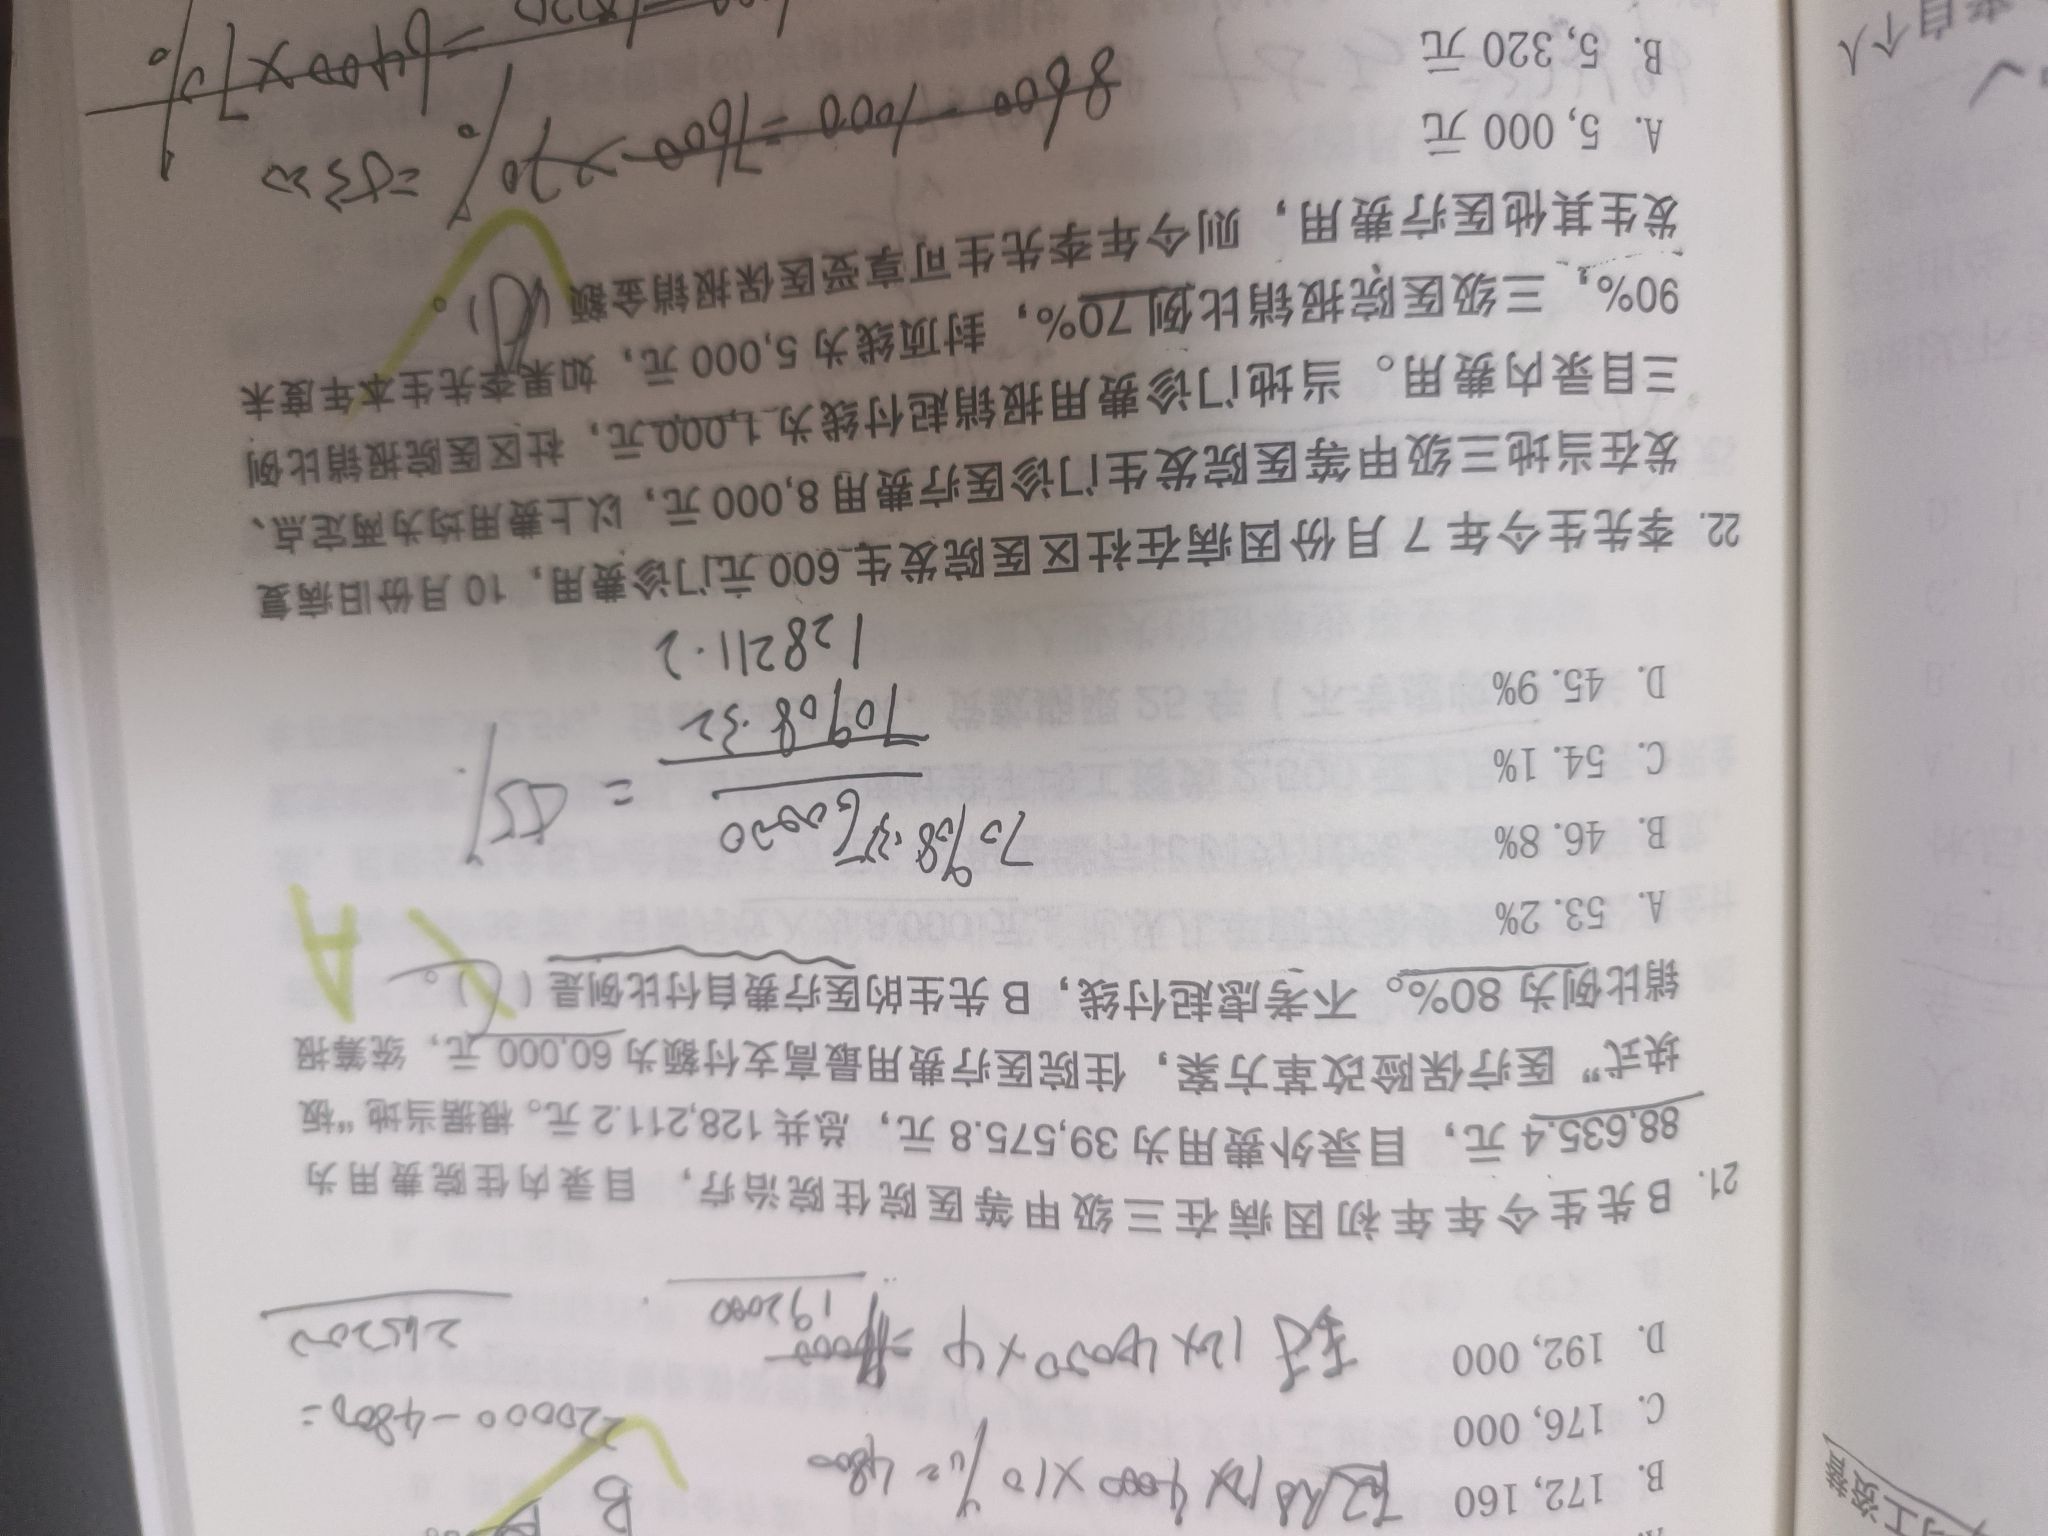 B. 172,160
C. 176,000
D. 192,000
220000-4800=
192000
21. B先生今年年初因病在三级甲等医院住院治疗，目录内住院费用为
88,635.4元，目录外费用为39,575.8元，总共128,211.2元。根据当地“板
块式”医疗保险改革方案，住院医疗费用最高支付额为60,000元，统筹报
销比例为80%。不考虑起付线，B先生的医疗费自付比例是（ ）。
A
A. 53.2%
B. 46.8%
C. 54.1%
D. 45.9%
70908.32
128211.2
= 55%
22. 李先生今年7月份因病在社区医院发生600元门诊费用，10月份旧病复
发在当地三级甲等医院发生门诊医疗费用8,000元，以上费用均为两定点、
三目录内费用。当地门诊费用报销起付线为1,000元，社区医院报销比例
90%，三级医院报销比例70%，封顶线为5,000元，如果李先生本年度未
发生其他医疗费用，则今年李先生可享受医保报销金额（ ）。
A. 5,000元
8600-1000=7600×70%=5320
B. 5,320元
=6400×70%